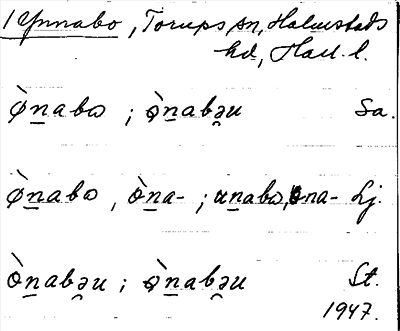 1 Ynnabo, Torups sn, Halmstads
hd, Hall. l.
ø̀n̲abω ; ø̀n̲abə̯u Sa.
ø̀n̲abω, òn̲a- ; un̲abω, ona- Lj.
òn̲abə̯u ; ø̀n̲abə̯u St.
1947.